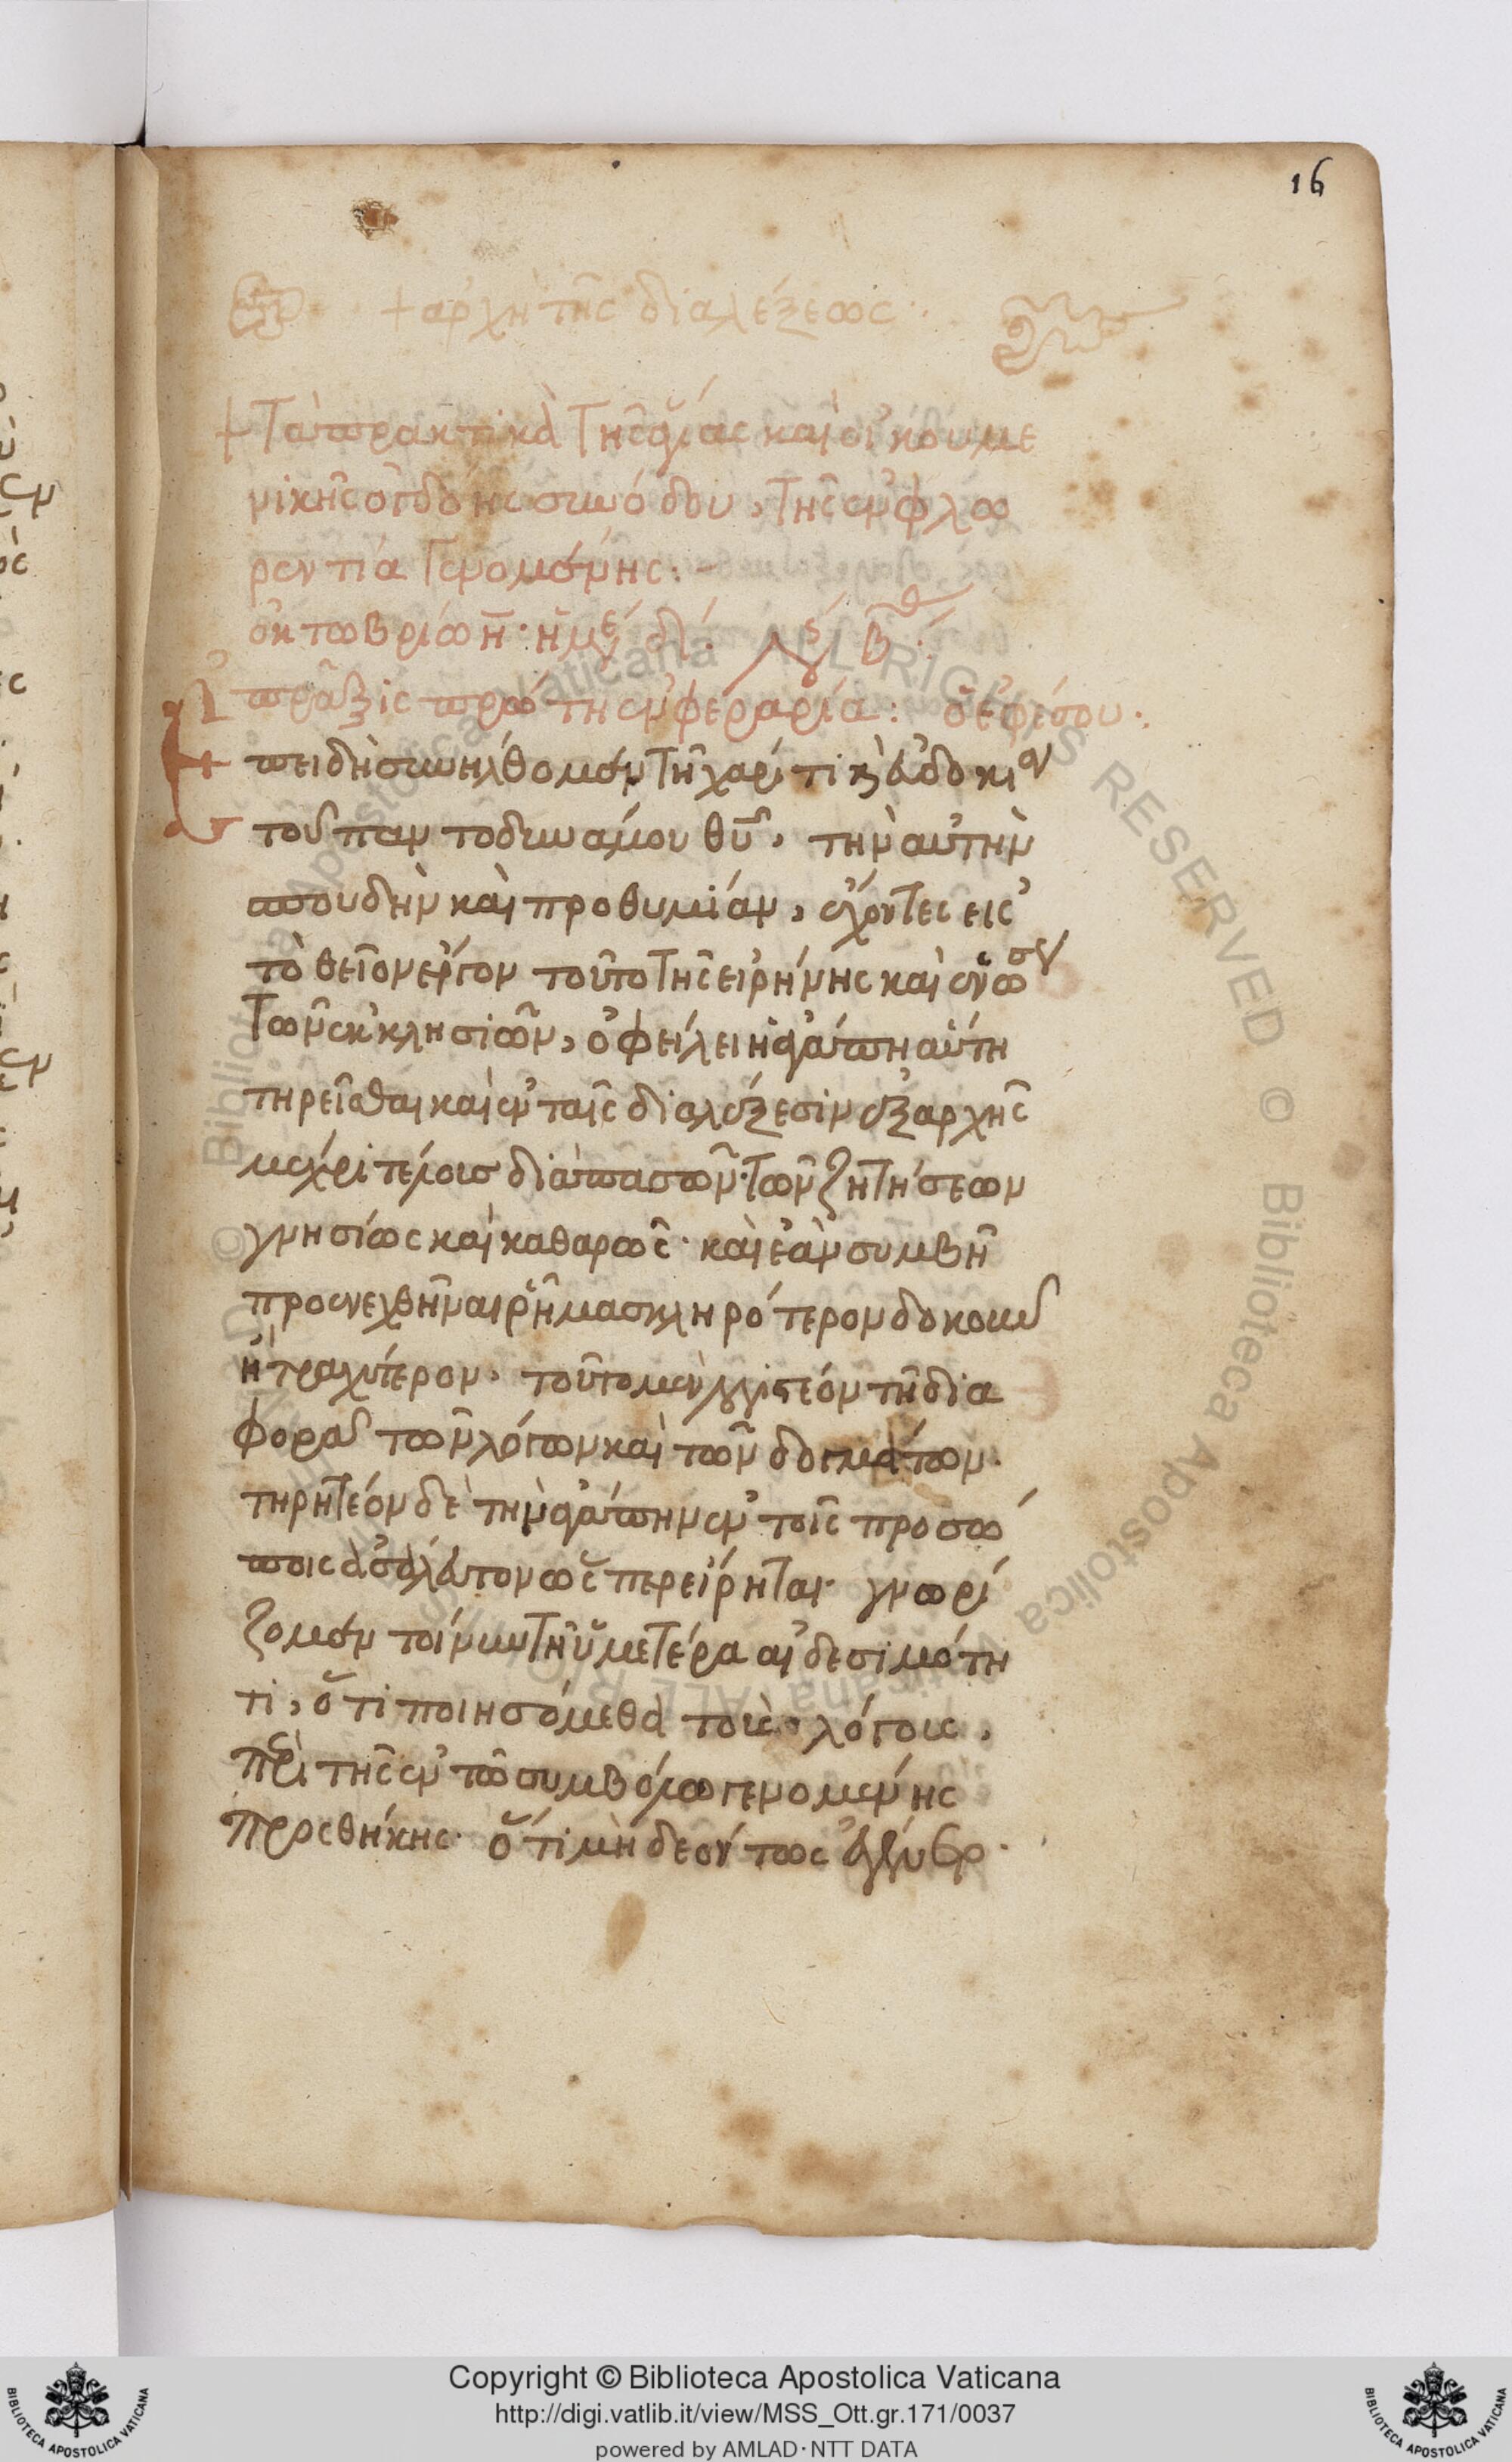 16
+ ἀρχὴ τῆς διαλέξεως.
+ Τὰ πρακτικὰ τῆς ἁγίας καὶ οἰκουμε
νικῆς ὀγδόης συνόδου, τῆς ἐν φλω
ρεντία γενομένης:-
ὀκτωβρίω η̄ ἡμέ
πρᾶξις πρώτη ἐν φεραρία: ὁ ἐφέσου.
πειδὴ συνήλθομεν τῆ χάριτι κ εὐδοκία
τοῦ παντοδυνάμου θῦ, τὴν αὐτὴν
σπουδὴν καὶ προθυμίαν, ἔχοντες εἰς
τὸ θεῖον ἔργον τοῦτο τῆς εἰρήνης καὶ ἑνώσεως
τῶν ἐκκλησιῶν, ὀφείλει ἡ ἀγάπη αὕτη
τηρεῖσθαι καὶ ἐν ταῖς διαλέξεσιν ἐξαρχῆς
μέχρι τέλους διὰ πασῶν τῶν ζητήσεων
γνησίως καὶ καθαρῶς. καὶ ἐὰν συμβῆ
προσενεχθῆναι ῥῆμα σκληρότερον δοκοῦν
ἢ τραχύτερον. τοῦτο μὲν λογιστέον τῆ δια
φορᾶ τῶν λόγων καὶ τῶν δογμάτων.
τηρητέον δὲ τὴν ἀγάπην ἐν τοῖς προσώ
ποις ἀσάλευτον ὥσπερ εἴρηται. γνωρί
ζομεν τοίνυν τῆ ὑμετέρα αἰδεσιμότη
τι, ὅτι ποιησόμεθα τοὺς λόγους,
περὶ τῆς ἐν τῶ συμβόλω γενομένης
προσθήκης. ὅτι μὴ δεόντως
Copyright © Biblioteca Apostolica Vaticana
http://digi.vatlib.it/view/MSS_Ott.gr.171/0037
powered by AMLAD·NTT DATA